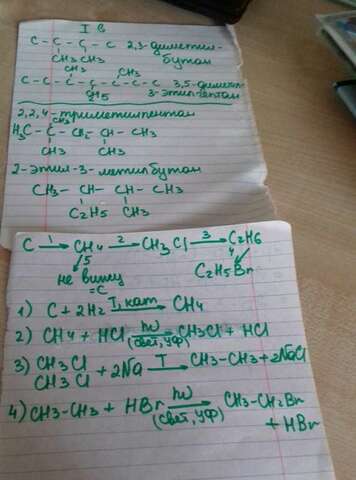 I в
C - C - C - C 2,3-диметил-
CH3 CH3 бутан
CH3 CH3
C - C - C - C - C - C - C 3,5-димет
C2H5 3-этилгептан
2,2,4-триметилпентан
CH3
H3C - C - CH2 - CH - CH3
CH3 CH3
2-этил-3-метилбутан
CH3 - CH - CH - CH3
C2H5 CH3
C 1→ CH4 2→ CH3Cl 3→ C2H6
↘5 4↙
не вижу C2H5Br
=C
1) C + 2H2 T, кат.→ CH4
2) CH4 + HCl hν→ CH3Cl + HCl
(свет, УФ)
3) CH3Cl + 2Na T→ CH3-CH3 + 2NaCl
CH3Cl
4) CH3-CH3 + HBr hν→ CH3-CH2Br
(свет, УФ) + HBr